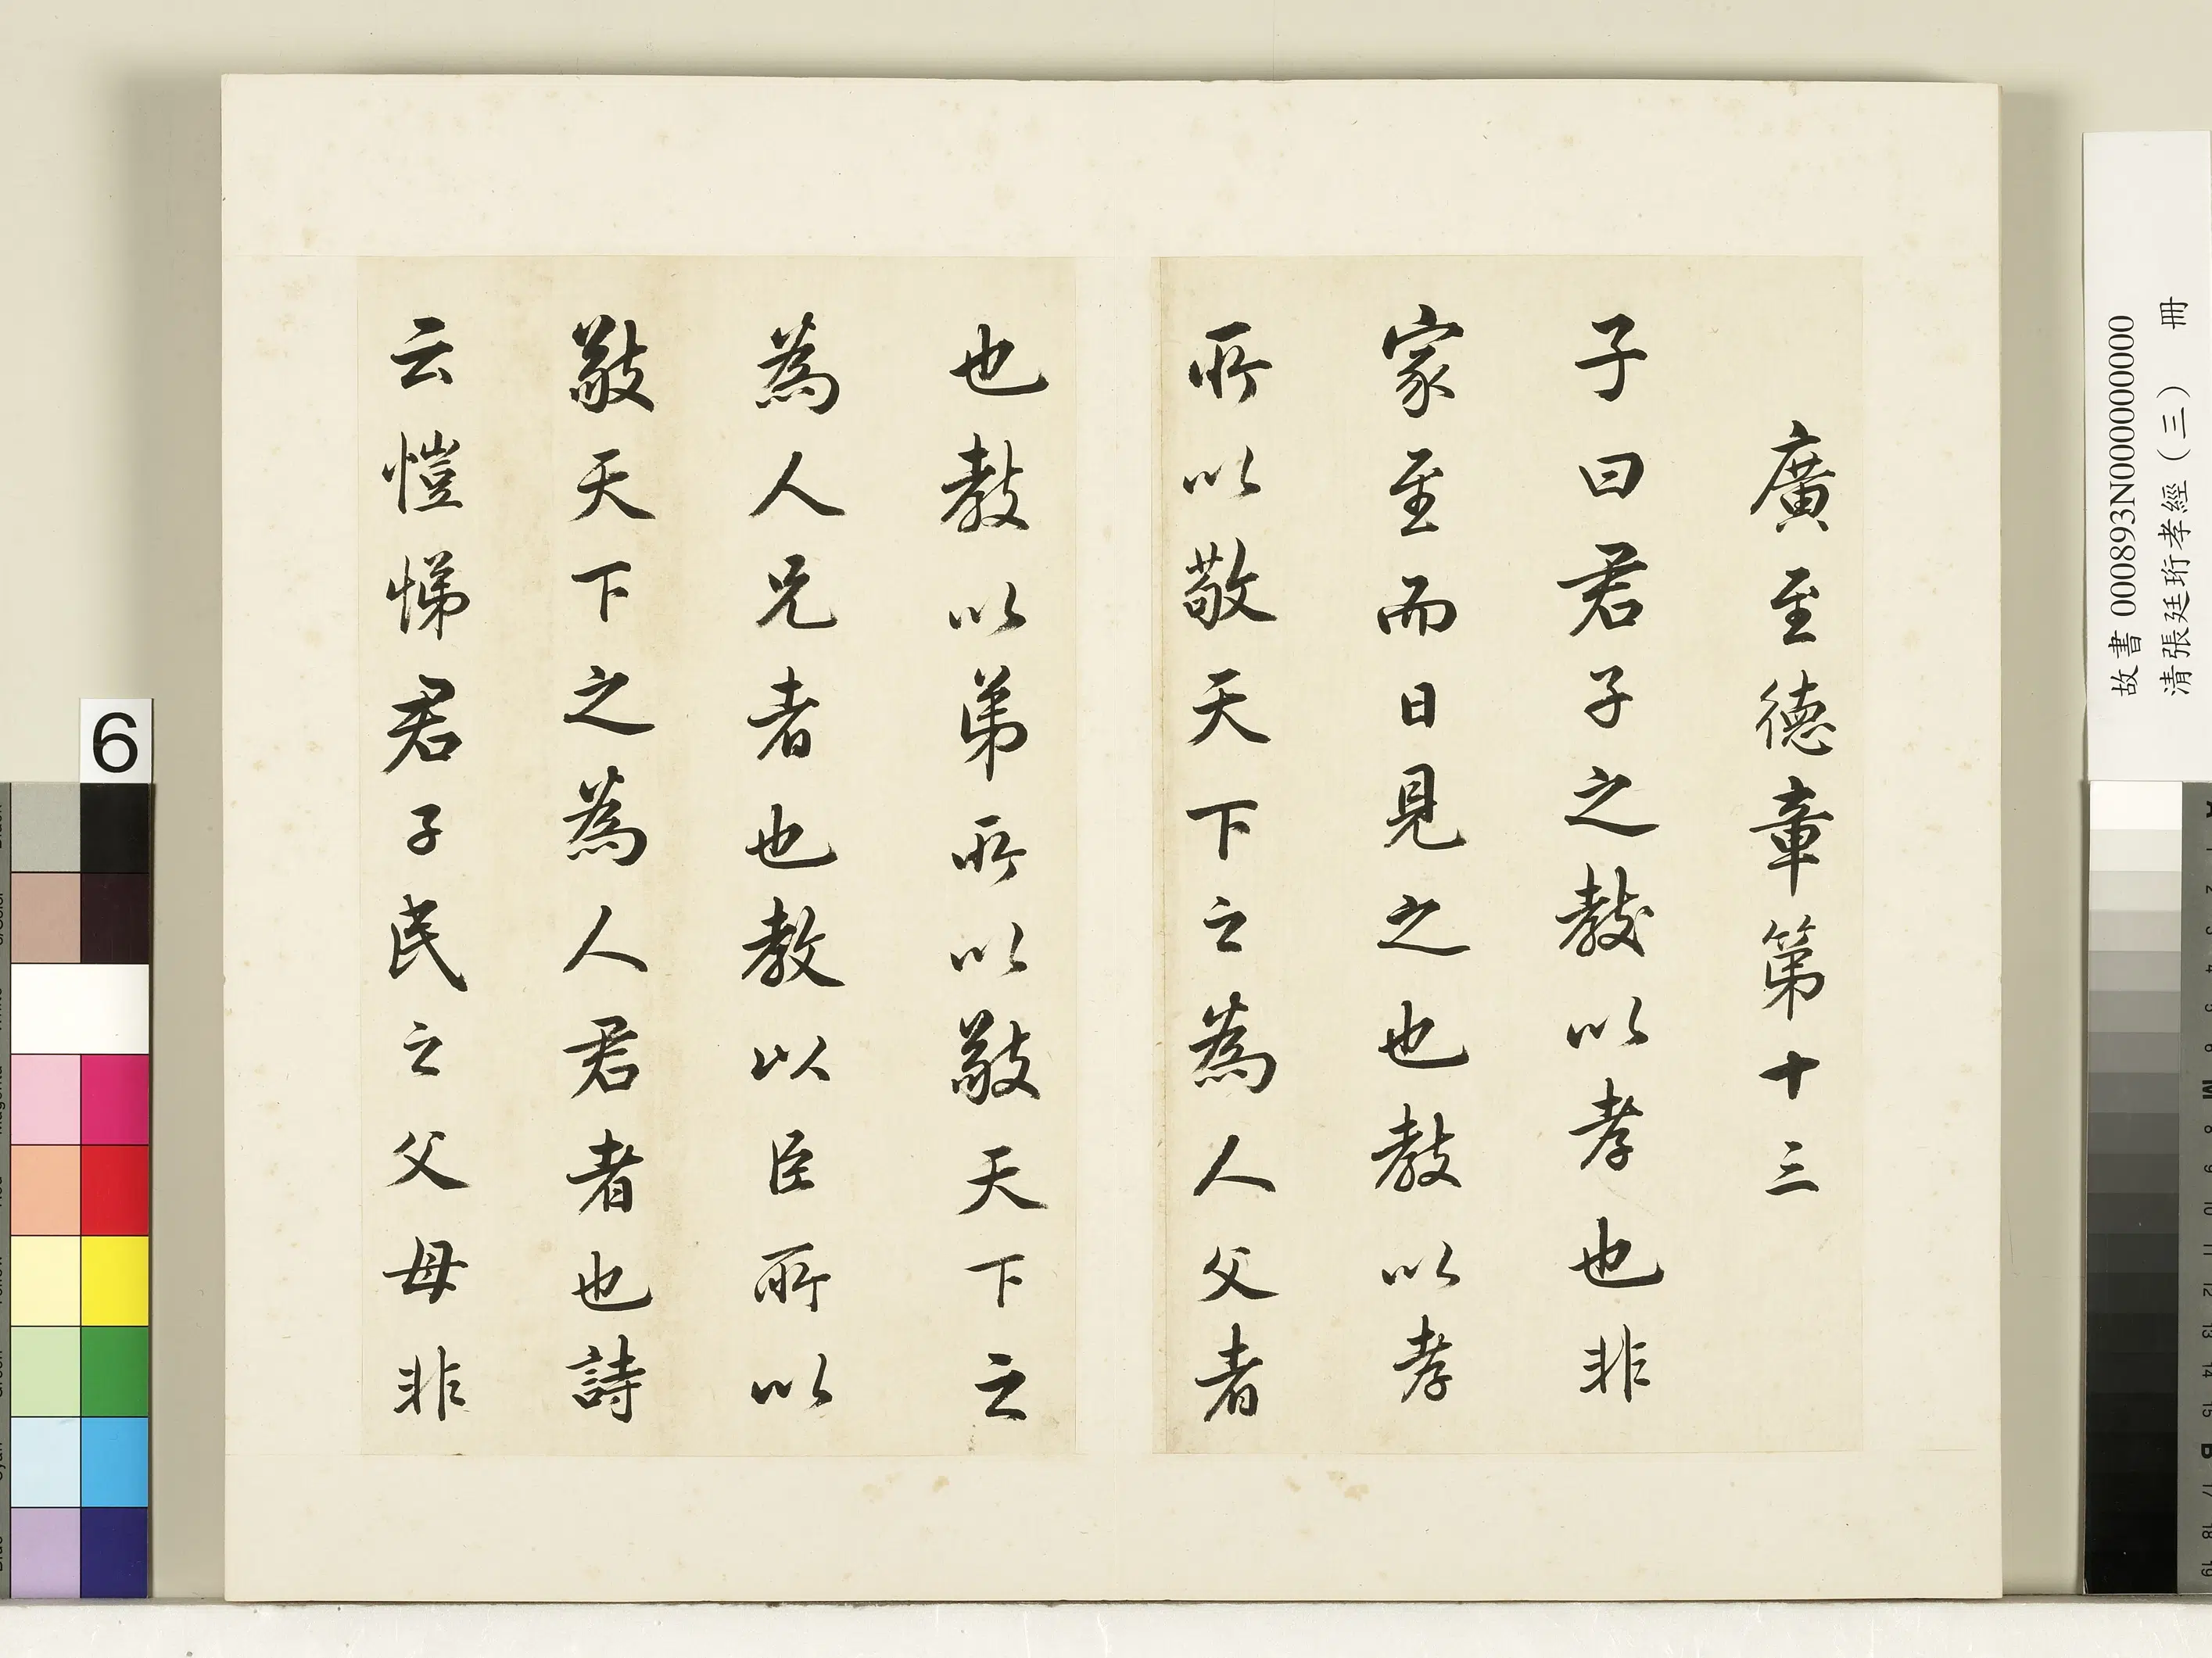 廣至德章第十三
子曰君子之教以孝也非
家至而日見之也教以孝
所以敬天下之為人父者
也教以弟所以敬天下之
為人兄者也教以臣所以
敬天下之為人君者也詩
云愷悌君子民之父母非
故書 000893N000000000
清張廷珩孝經(三) 冊
6